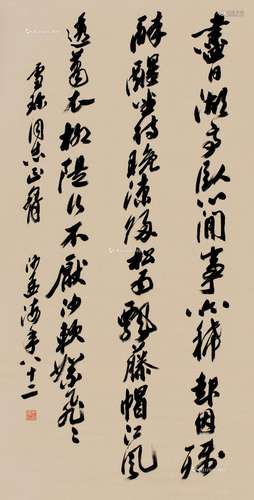 盡日湖亭臥心閒事亦稀起因殘
醉醒坐待晚涼歸松雨飄藤帽江風
透葛衣柳隄行不厭沙軟絮
雪 同志正
沙孟海年八十二